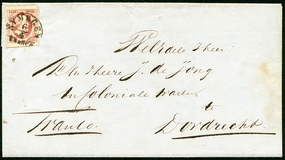 Den Heere J. de Jong
In Coloniale Waren
te
Franco. Dordrecht